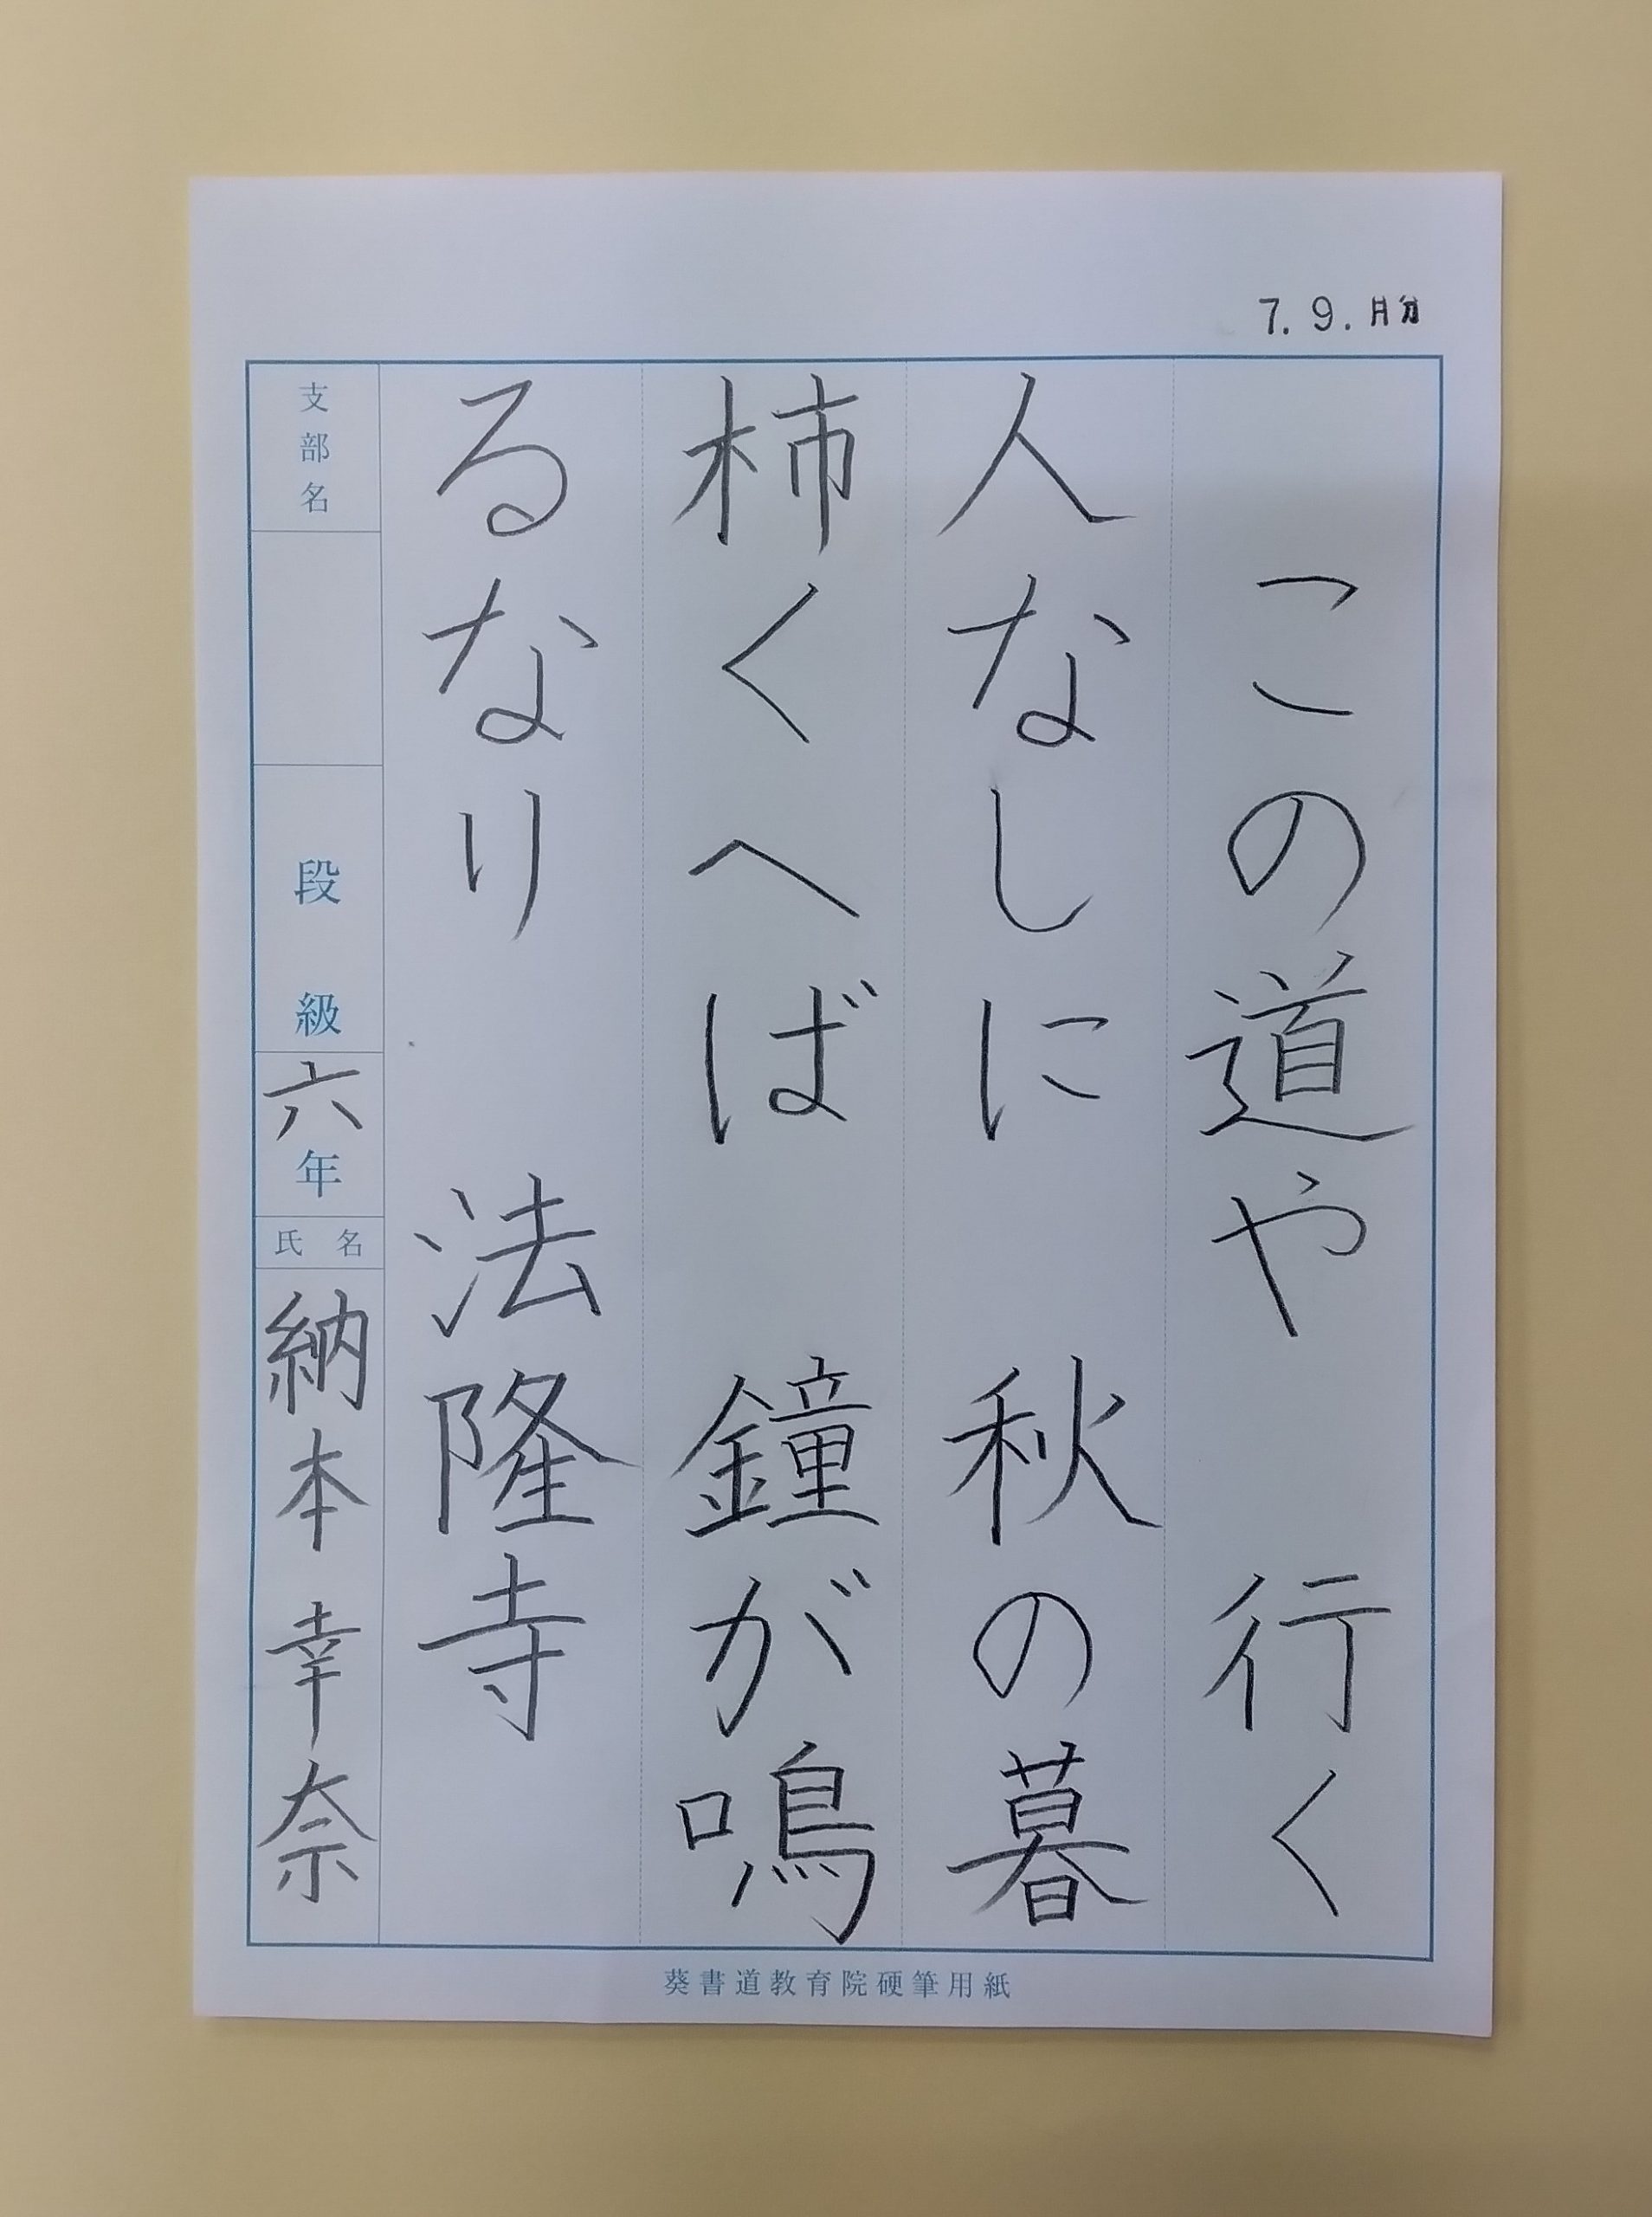 7.9.月分
この道や　行く
人なしに　秋の暮
柿くへば　鐘が鳴
るなり　法隆寺
支部名
段級
六年
氏名
納本幸奈
葵書道教育院硬筆用紙